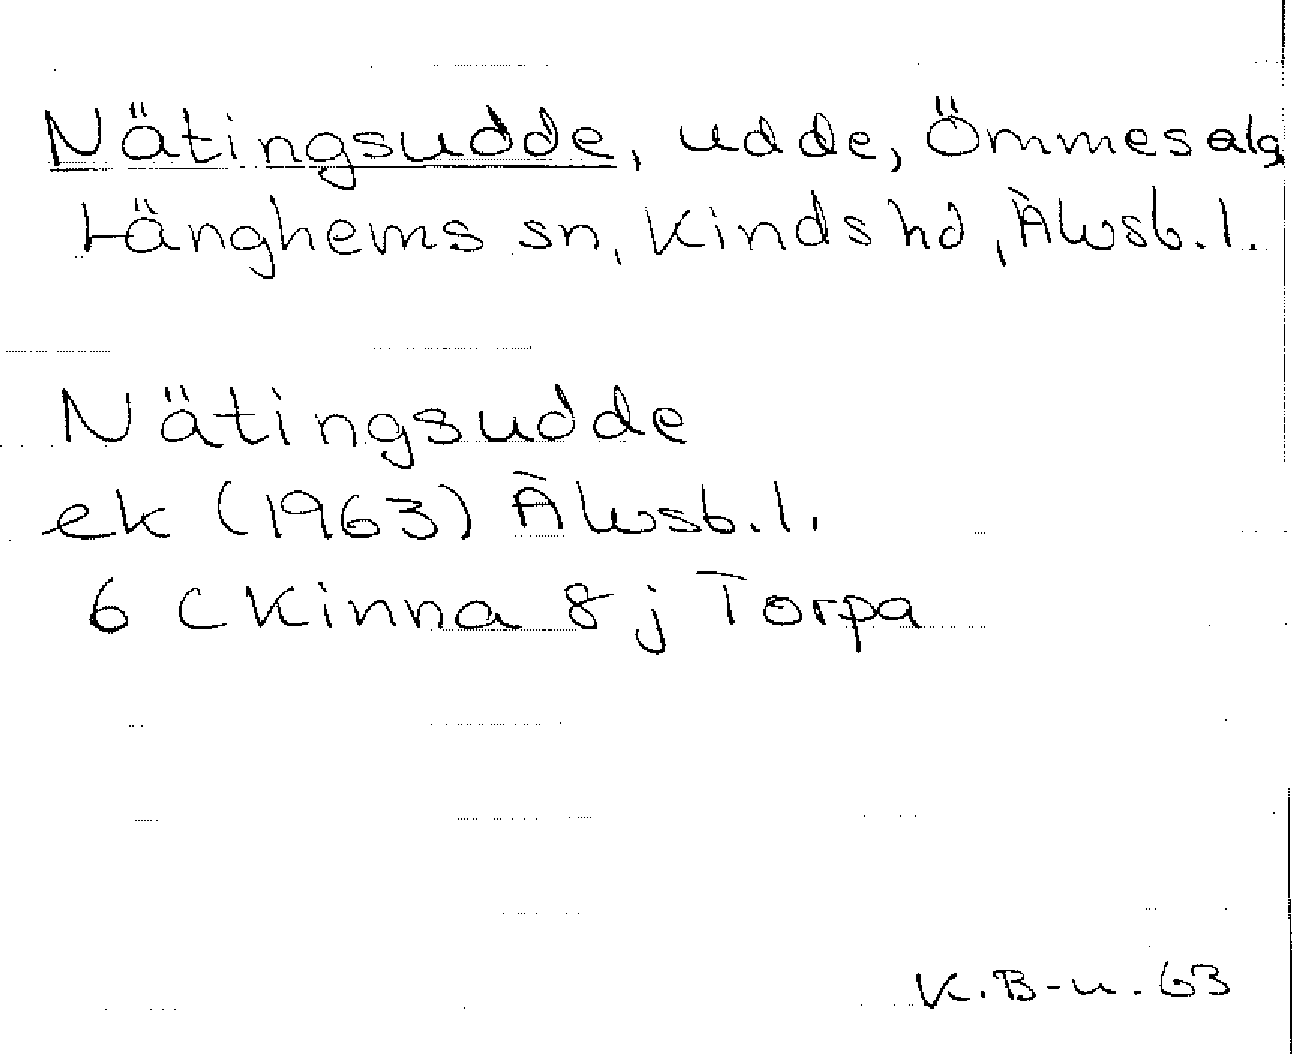 Nätingsudde, udde, Ömmesala
Länghems sn, Kinds hd, Älvsb. l.
Nätingsudde
ek (1963) Älvsb. l.
6 C Kinna 8 j Torpa
K. B-n. 63